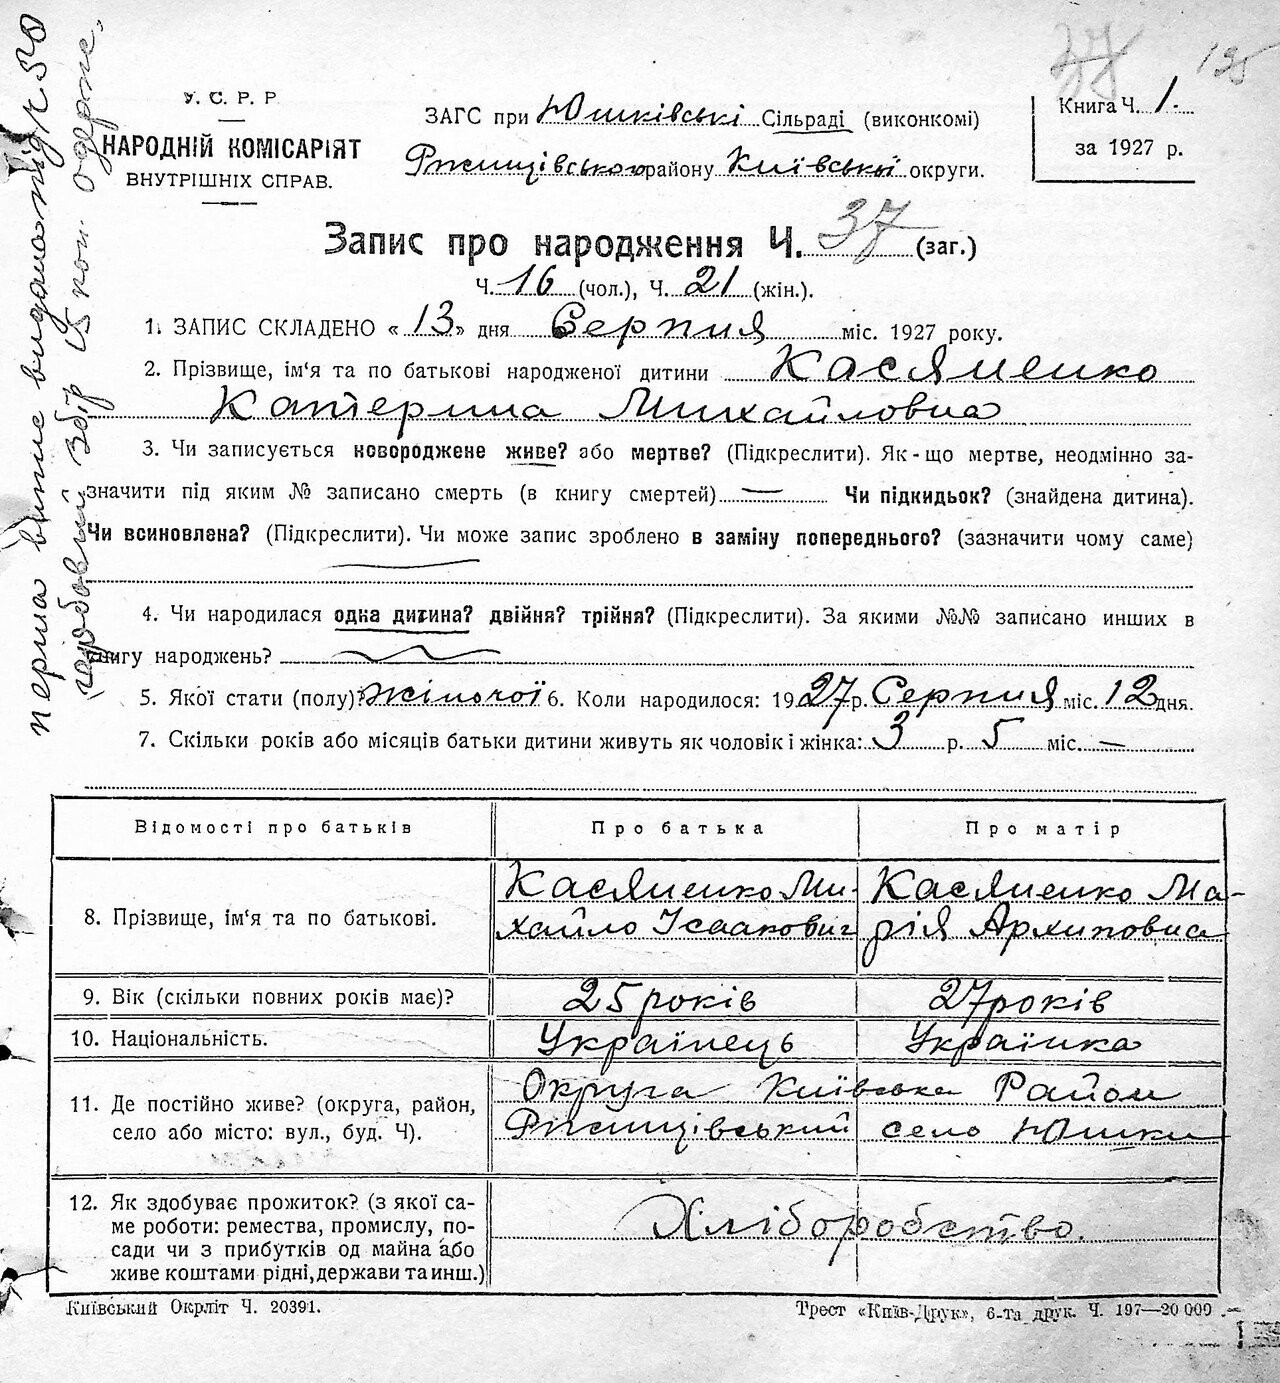 37
125
У. С. Р. Р
НАРОДНІЙ КОМІСАРІЯТ
ВНУТРІШНІХ СПРАВ.
ЗАГС при Юшківські Сільраді (виконкомі)
Ржищівського району Київської округи.
Книга Ч. 1.
за 1927 р.
Запис про народження Ч. 37 (заг.)
Ч. 16 (чол.), Ч. 21 (жін.).
1. ЗАПИС СКЛАДЕНО «13» дня Серпня міс. 1927 року.
2. Прізвище, ім'я та по батькові народженої дитини Касяненко
Катерина Михайловна
3. Чи записується новороджене живе? або мертве? (Підкреслити). Як-що мертве, неодмінно за-
значити під яким № записано смерть (в книгу смертей) — Чи підкидьок? (знайдена дитина).
Чи всиновлена? (Підкреслити). Чи може запис зроблено в заміну попереднього? (зазначити чому саме)
4. Чи народилася одна дитина? двійня? трійня? (Підкреслити). За якими №№ записано инших в
книгу народжень?
5. Якої стати (полу)? жіночої 6. Коли народилося: 1927 р. Серпня міс. 12 дня.
7. Скільки років або місяців батьки дитини живуть як чоловік і жінка: 3 р. 5 міс. —
Відомості про батьків
Про батька
Про матір
8. Прізвище, ім'я та по батькові.
Касяненко Ми-
хайло Ісаакович
Касяненко Ма-
рія Архиповна
9. Вік (скільки повних років має)?
25 років
27 років
10. Національність.
Українець
Українка
11. Де постійно живе? (округа, район,
село або місто: вул., буд. Ч).
Округа Київська Район
Ржищівський село Юшки
12. Як здобуває прожиток? (з якої са-
ме роботи: ремества, промислу, по-
сади чи з прибутків од майна або
живе коштами рідні, держави та инш.)
Хліборобство.
Київський Окрліт Ч. 20391.
Трест «Київ-Друк», 6-та друк. Ч. 197—20 000
перша випис видано під ч 50
гербовий збір 15 коп. одерж.